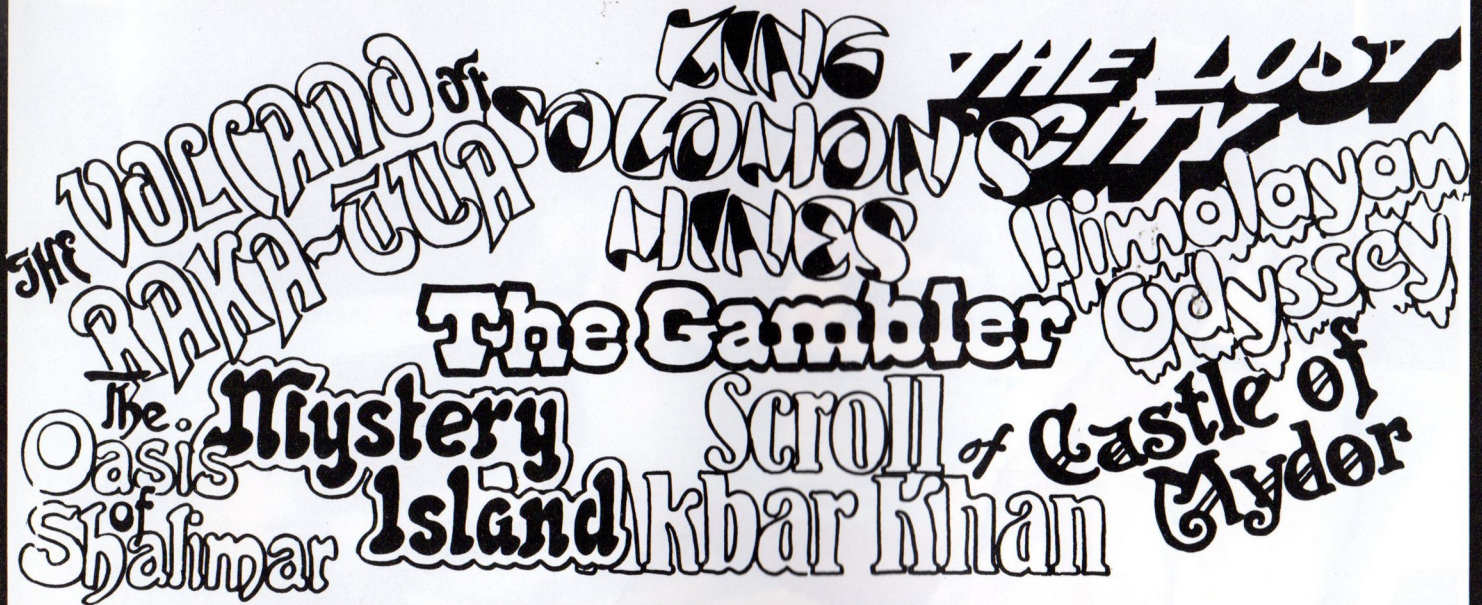 THE VOLCANO OF
RAKA-TUA
KING
SOLOMON'S
MINES
THE LOST
CITY
Himalayan
Odyssey
The Gambler
The
Oasis
of
Shalimar
Mystery
Island
Scroll of
Akbar Khan
Castle of
Mydor